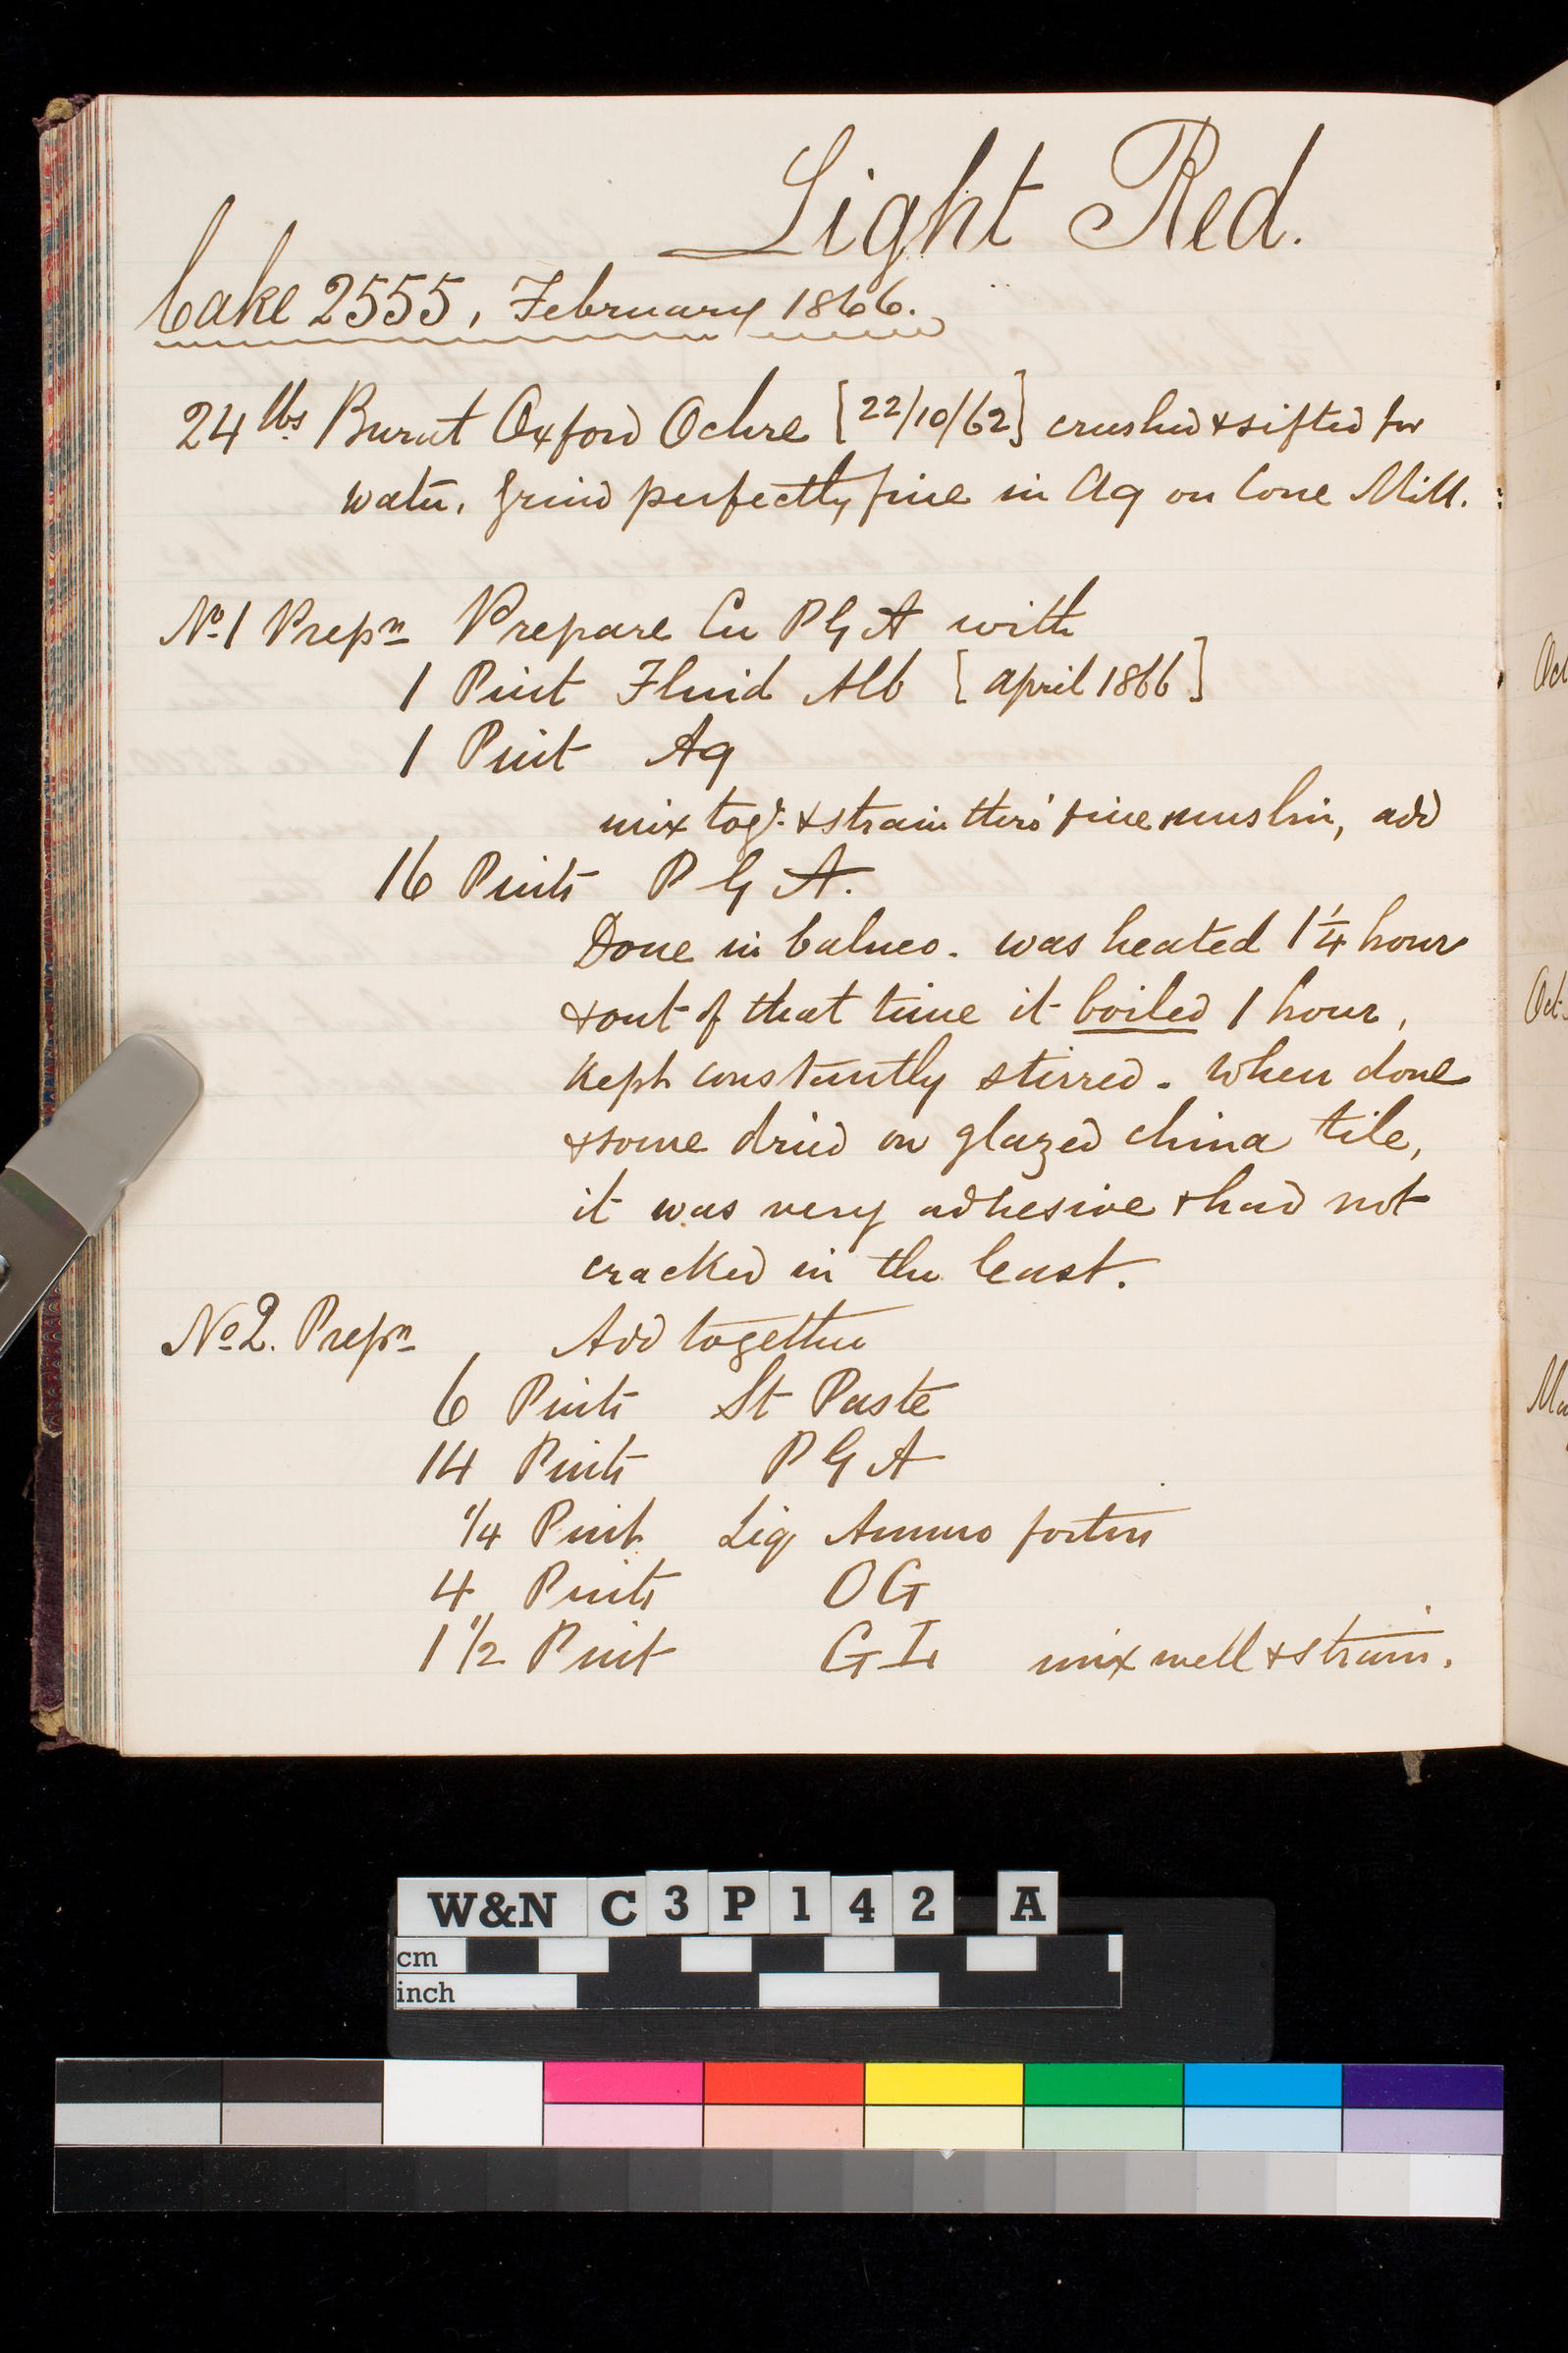 Light Red.
Cake 2555, February 1866.
24 lbs Burnt Oxford Ochre [22/10/62] crushed & sifted for
water, grind perfectly fine in Aq on Cone Mill.
No. 1 Prepn Prepare Cu P G A with
1 Pint Fluid Alb [April 1866]
1 Pint Aq
mix togr. & strain thro' fine muslin, add
16 Pints P G A.
Done in balneo. was heated 1 1/4 hour
& out of that time it boiled 1 hour,
kept constantly stirred. When done
& some dried on glazed china tile,
it was very adhesive & had not
cracked in the least.
No 2. Prepn Add together
6 Pints St Paste
14 Pints P G A
1/4 Pint Liq Ammo fortis
4 Pints O G
1 1/2 Pint G L mix well & strain.
Oct
Ma
W&N C 3 P 1 4 2 A
cm
inch